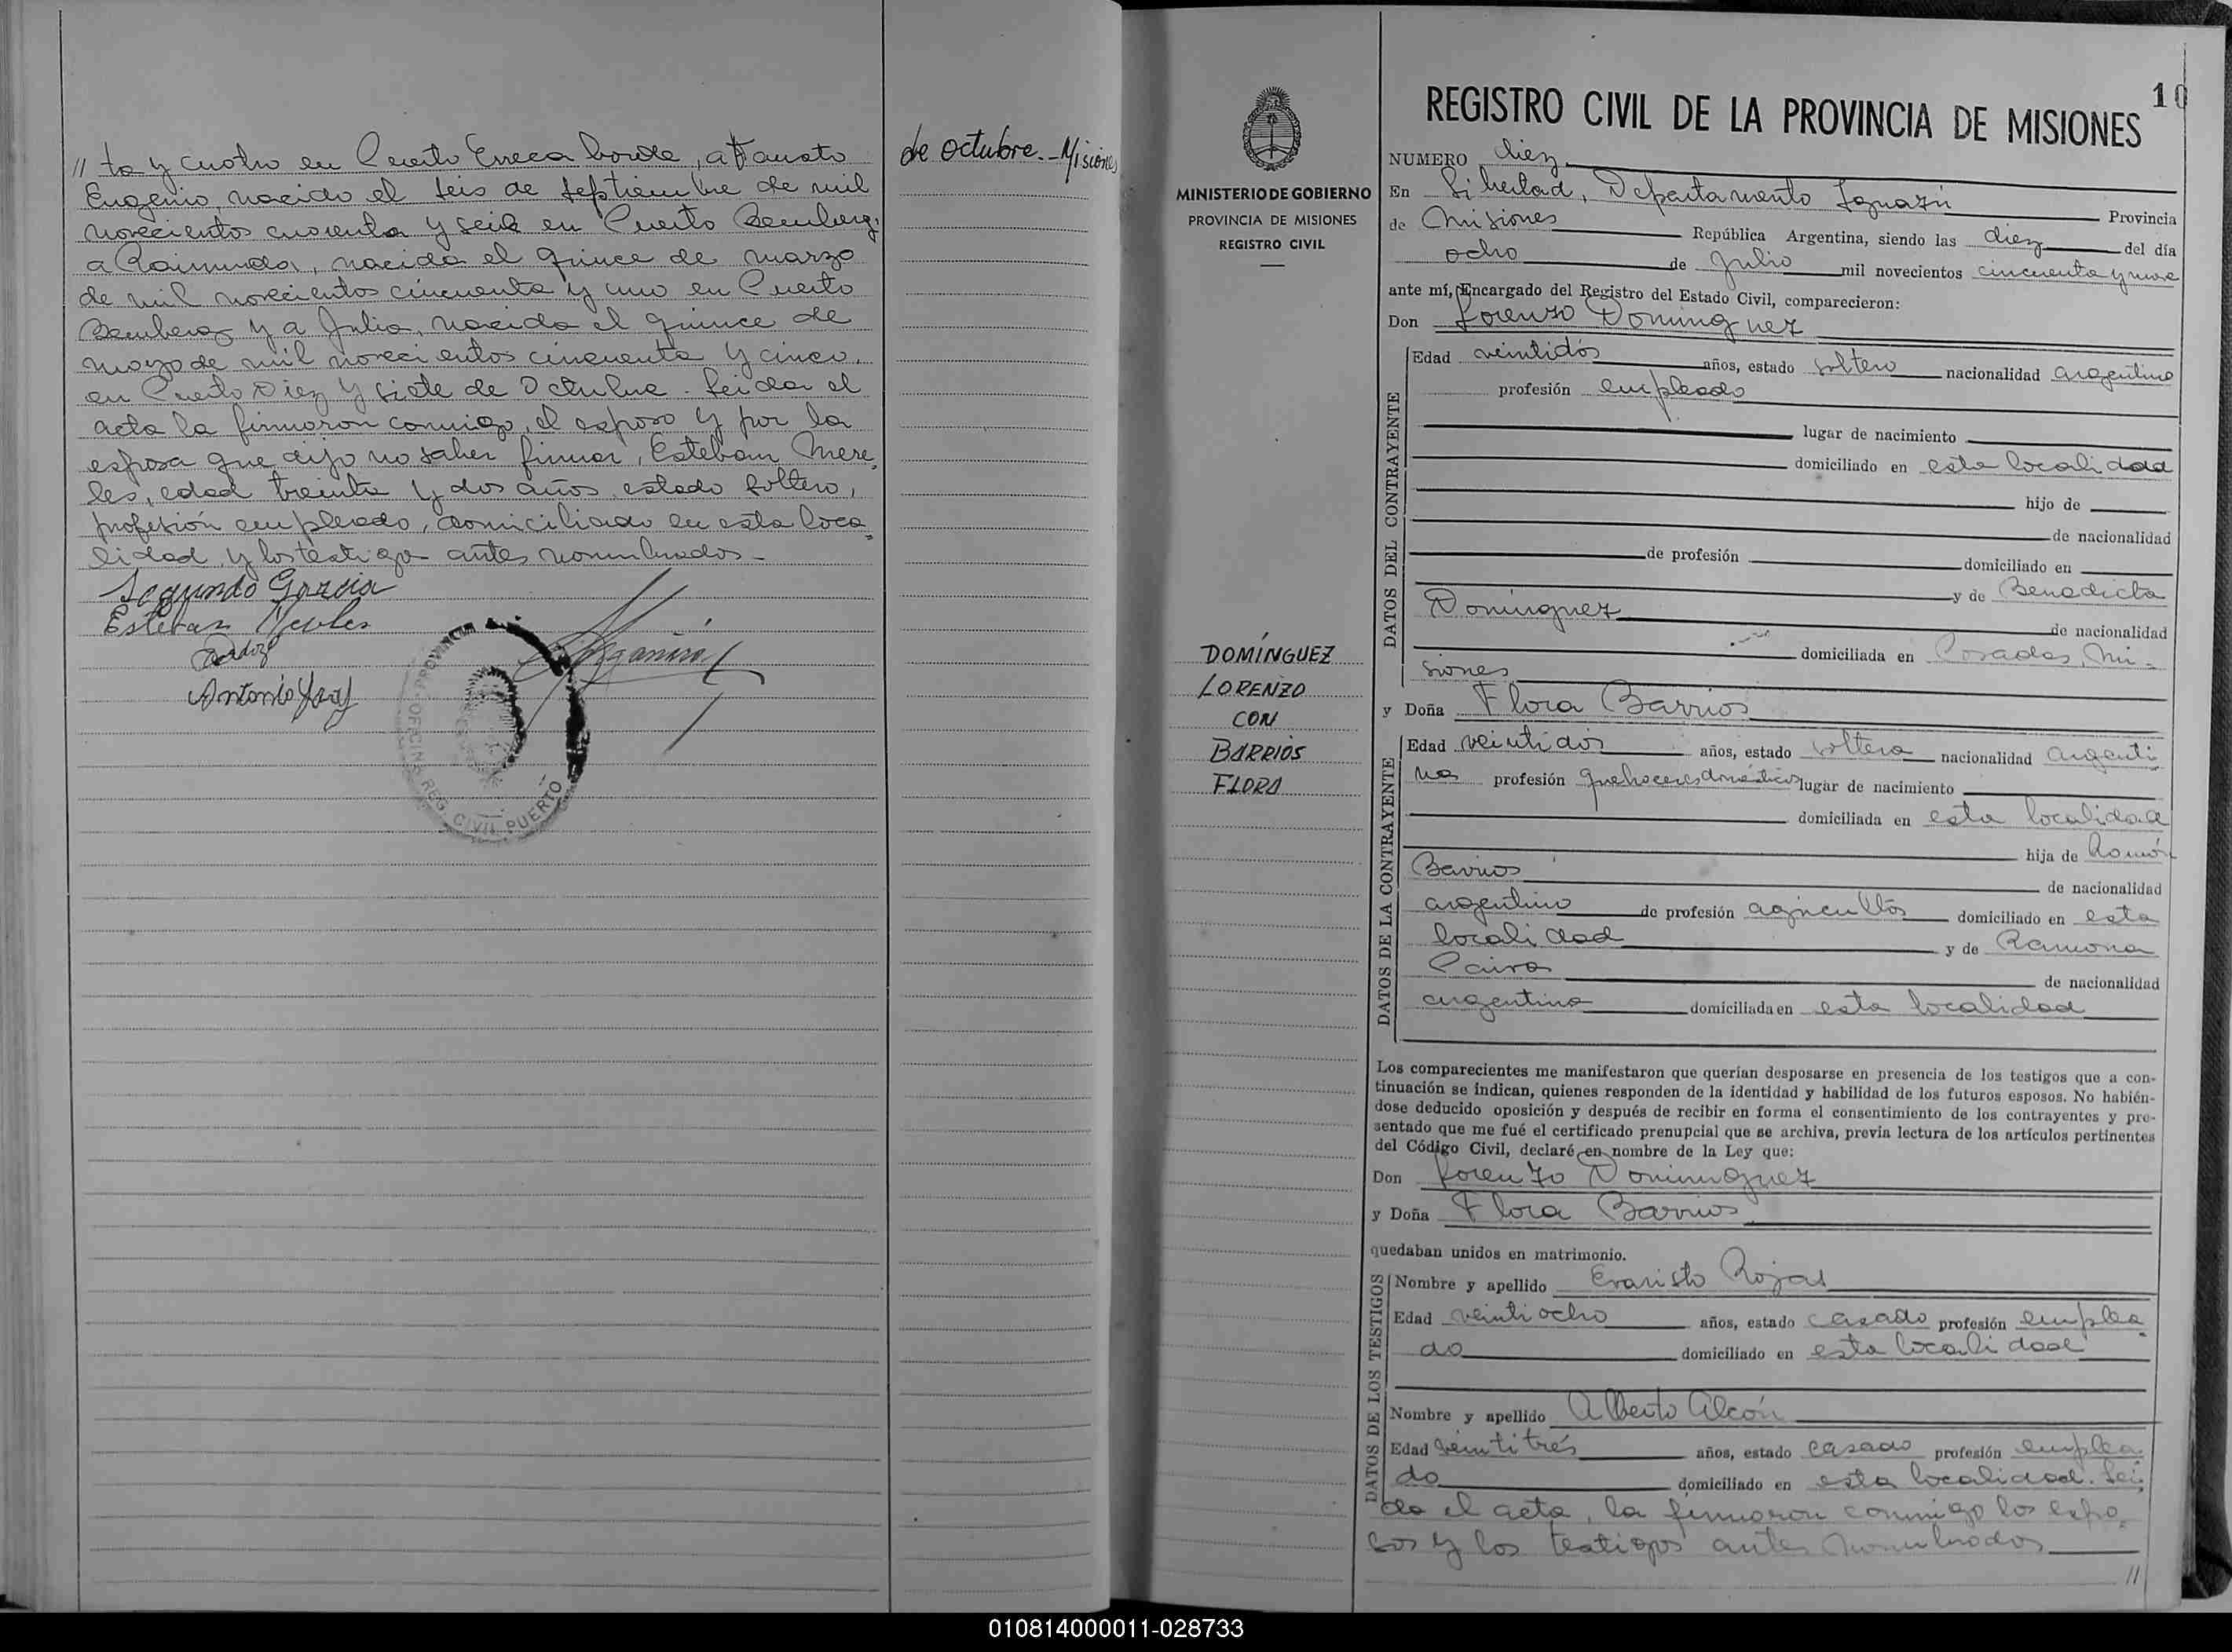 // ta y cuatro en Puerto Eneca borde, a Fausto
Eugenio, nacido el seis de septiembre de mil
novecientos cuarenta y seis en Puerto Bemberg,
a Raimunda, nacida el quince de marzo
de mil novecientos cincuenta y uno en Puerto
Bemberg y a Julia, nacida el quince de
mayo de mil novecientos cincuenta y cinco,
en Puerto Diez y siete de Octubre. Leida el
acta la firmaron conmigo, el esposo y por la
esposa que dijo no saber firmar, Esteban Mere
les, edad treinta y dos años, estado soltero,
profesión empleado, domiciliado en esta loca
lidad y los testigos antes nombrados.-
Segundo Garcia
Esteban Mereles
Antonio
OFICINA REG. CIVIL PUERTO
PROVINCIA
de octubre.- Misiones
MINISTERIO DE GOBIERNO
PROVINCIA DE MISIONES
REGISTRO CIVIL
DOMÍNGUEZ
LORENZO
CON
BARRIOS
FLORA
10
REGISTRO CIVIL DE LA PROVINCIA DE MISIONES
NUMERO diez
En Libertad, Departamento Iguazú Provincia
de Misiones República Argentina, siendo las diez del día
ocho de Julio mil novecientos cincuenta y nueve
ante mí, Encargado del Registro del Estado Civil, comparecieron:
Don Lorenzo Dominguez
DATOS DEL CONTRAYENTE
Edad veintidós años, estado soltero nacionalidad argentina
profesión empleado
lugar de nacimiento
domiciliado en esta localidad
hijo de
de nacionalidad
de profesión domiciliado en
y de Benedicta
Domínguez de nacionalidad
domiciliada en Posadas, Mi-
siones
y Doña Flora Barrios
DATOS DE LA CONTRAYENTE
Edad veintidos años, estado soltera nacionalidad argenti
na profesión quehaceres domésticos lugar de nacimiento
domiciliada en esta localidad
hija de Ramón
Barrios de nacionalidad
argentino de profesión agricultor domiciliado en esta
localidad y de Ramona
Paiva de nacionalidad
argentina domiciliada en esta localidad
Los comparecientes me manifestaron que querían desposarse en presencia de los testigos que a con-
tinuación se indican, quienes responden de la identidad y habilidad de los futuros esposos. No habién-
dose deducido oposición y después de recibir en forma el consentimiento de los contrayentes y pre-
sentado que me fué el certificado prenupcial que se archiva, previa lectura de los artículos pertinentes
del Código Civil, declaré en nombre de la Ley que:
Don Lorenzo Dominguez
y Doña Flora Barrios
quedaban unidos en matrimonio.
DATOS DE LOS TESTIGOS
Nombre y apellido Evaristo Rojas
Edad veintiocho años, estado casado profesión emplea
do domiciliado en esta localidad
Nombre y apellido Alberto Alcón
Edad veintitrés años, estado casado profesión emplea
do domiciliado en esta localidad. Lei
da el acta, la firmaron conmigo los espo
sos y los testigos antes nombrados
//
010814000011-028733